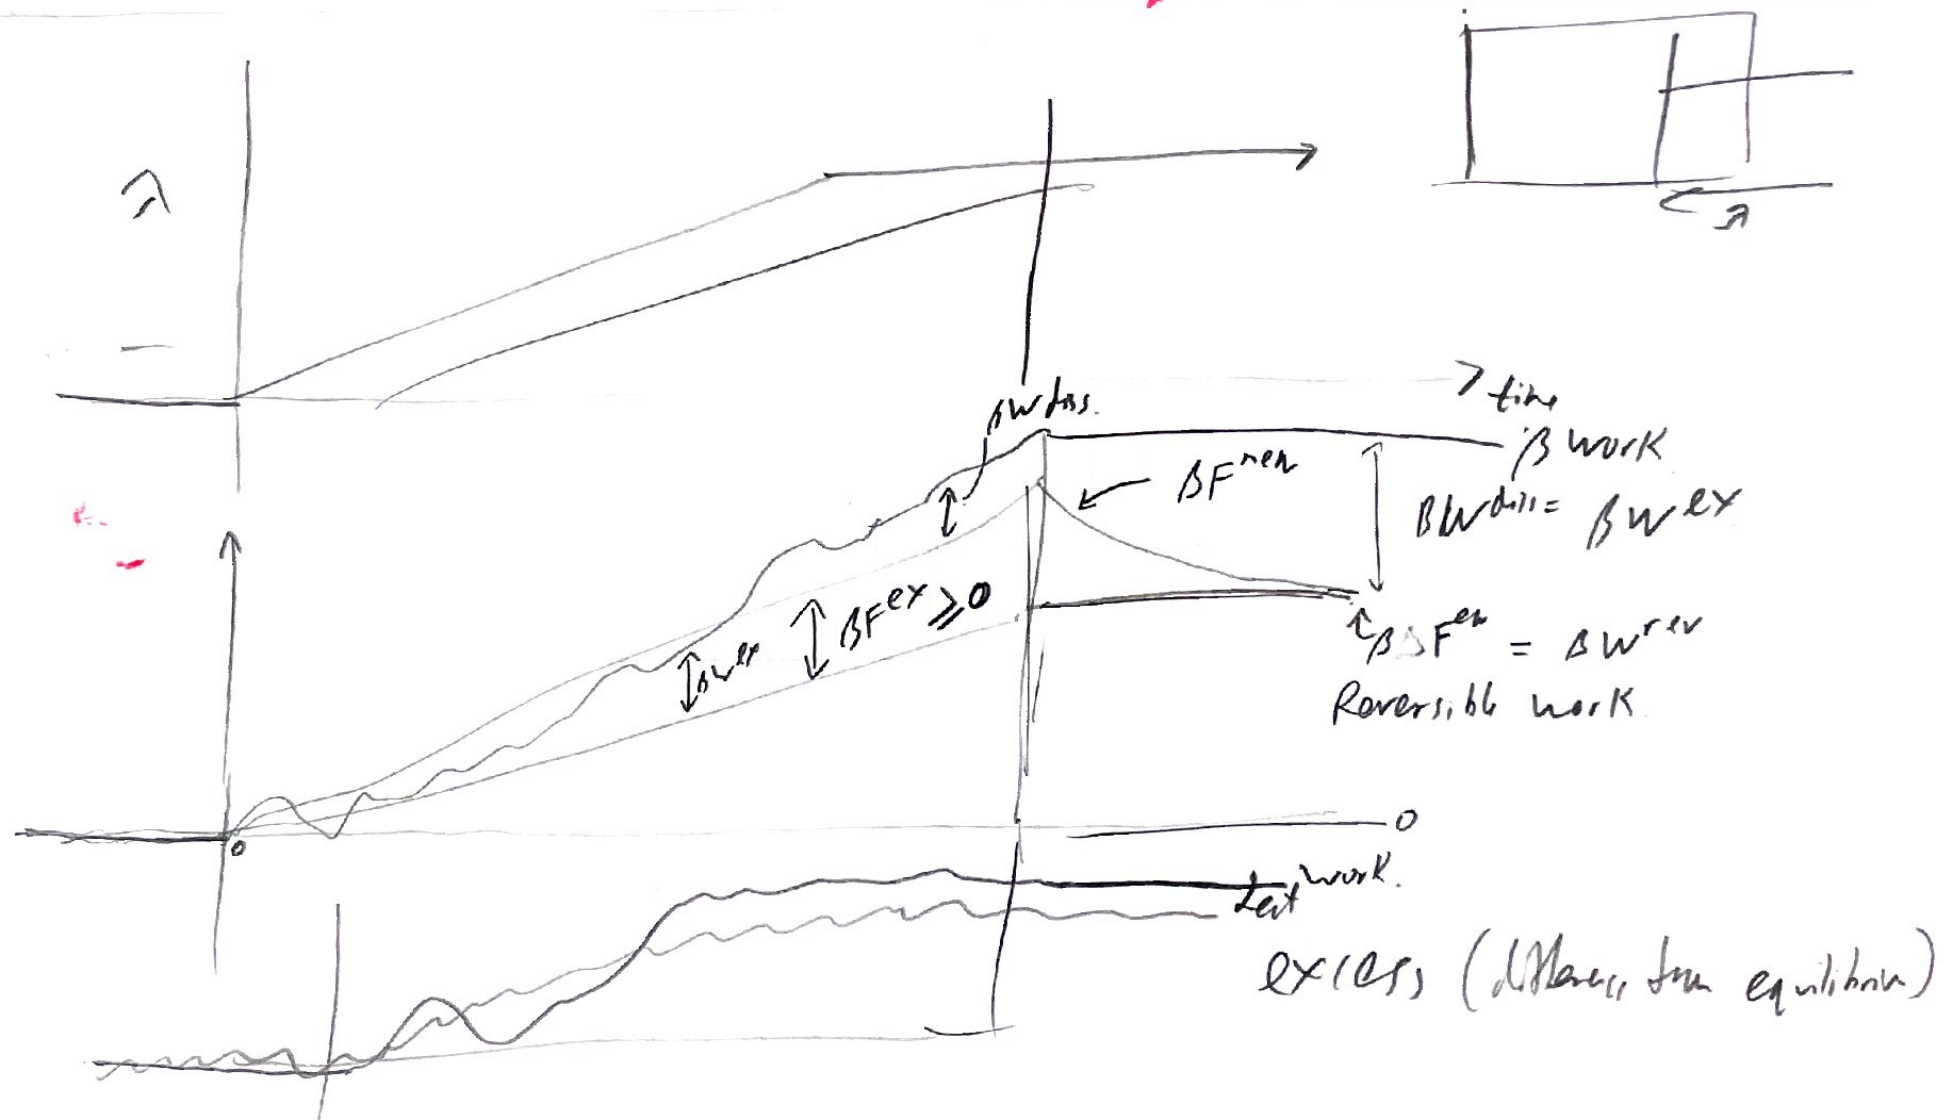 λ
λ
time
βW diss.
β work
βF^neq
βW^diss = βW^ex
βF^ex ⩾ 0
βW^ex
βΔF^eq = βW^rev
Reversible work
0
0
work.
heat
excess (difference from equilibrium)